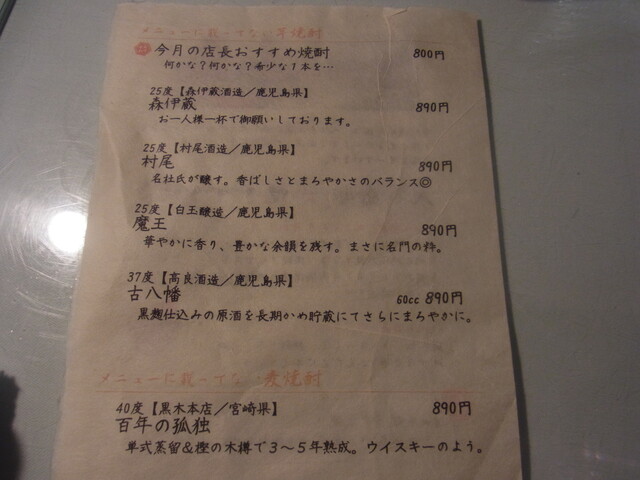 メニューに載ってない芋焼酎
今月の店長おすすめ焼酎 800円
何かな?何かな?希少な1本を…
25度【森伊蔵酒造/鹿児島県】
森伊蔵 890円
お一人様一杯で御願いしております。
25度【村尾酒造/鹿児島県】
村尾 890円
名杜氏が醸す。香ばしさとまろやかさのバランス◎
25度【白玉醸造/鹿児島県】
魔王 890円
華やかに香り、豊かな余韻を残す。まさに名門の粋。
37度【高良酒造/鹿児島県】
古八幡 60cc 890円
黒麹仕込みの原酒を長期かめ貯蔵にてさらにまろやかに。
メニューに載ってない麦焼酎
40度【黒木本店/宮崎県】 890円
百年の孤独
単式蒸留&樫の木樽で3~5年熟成。ウイスキーのよう。